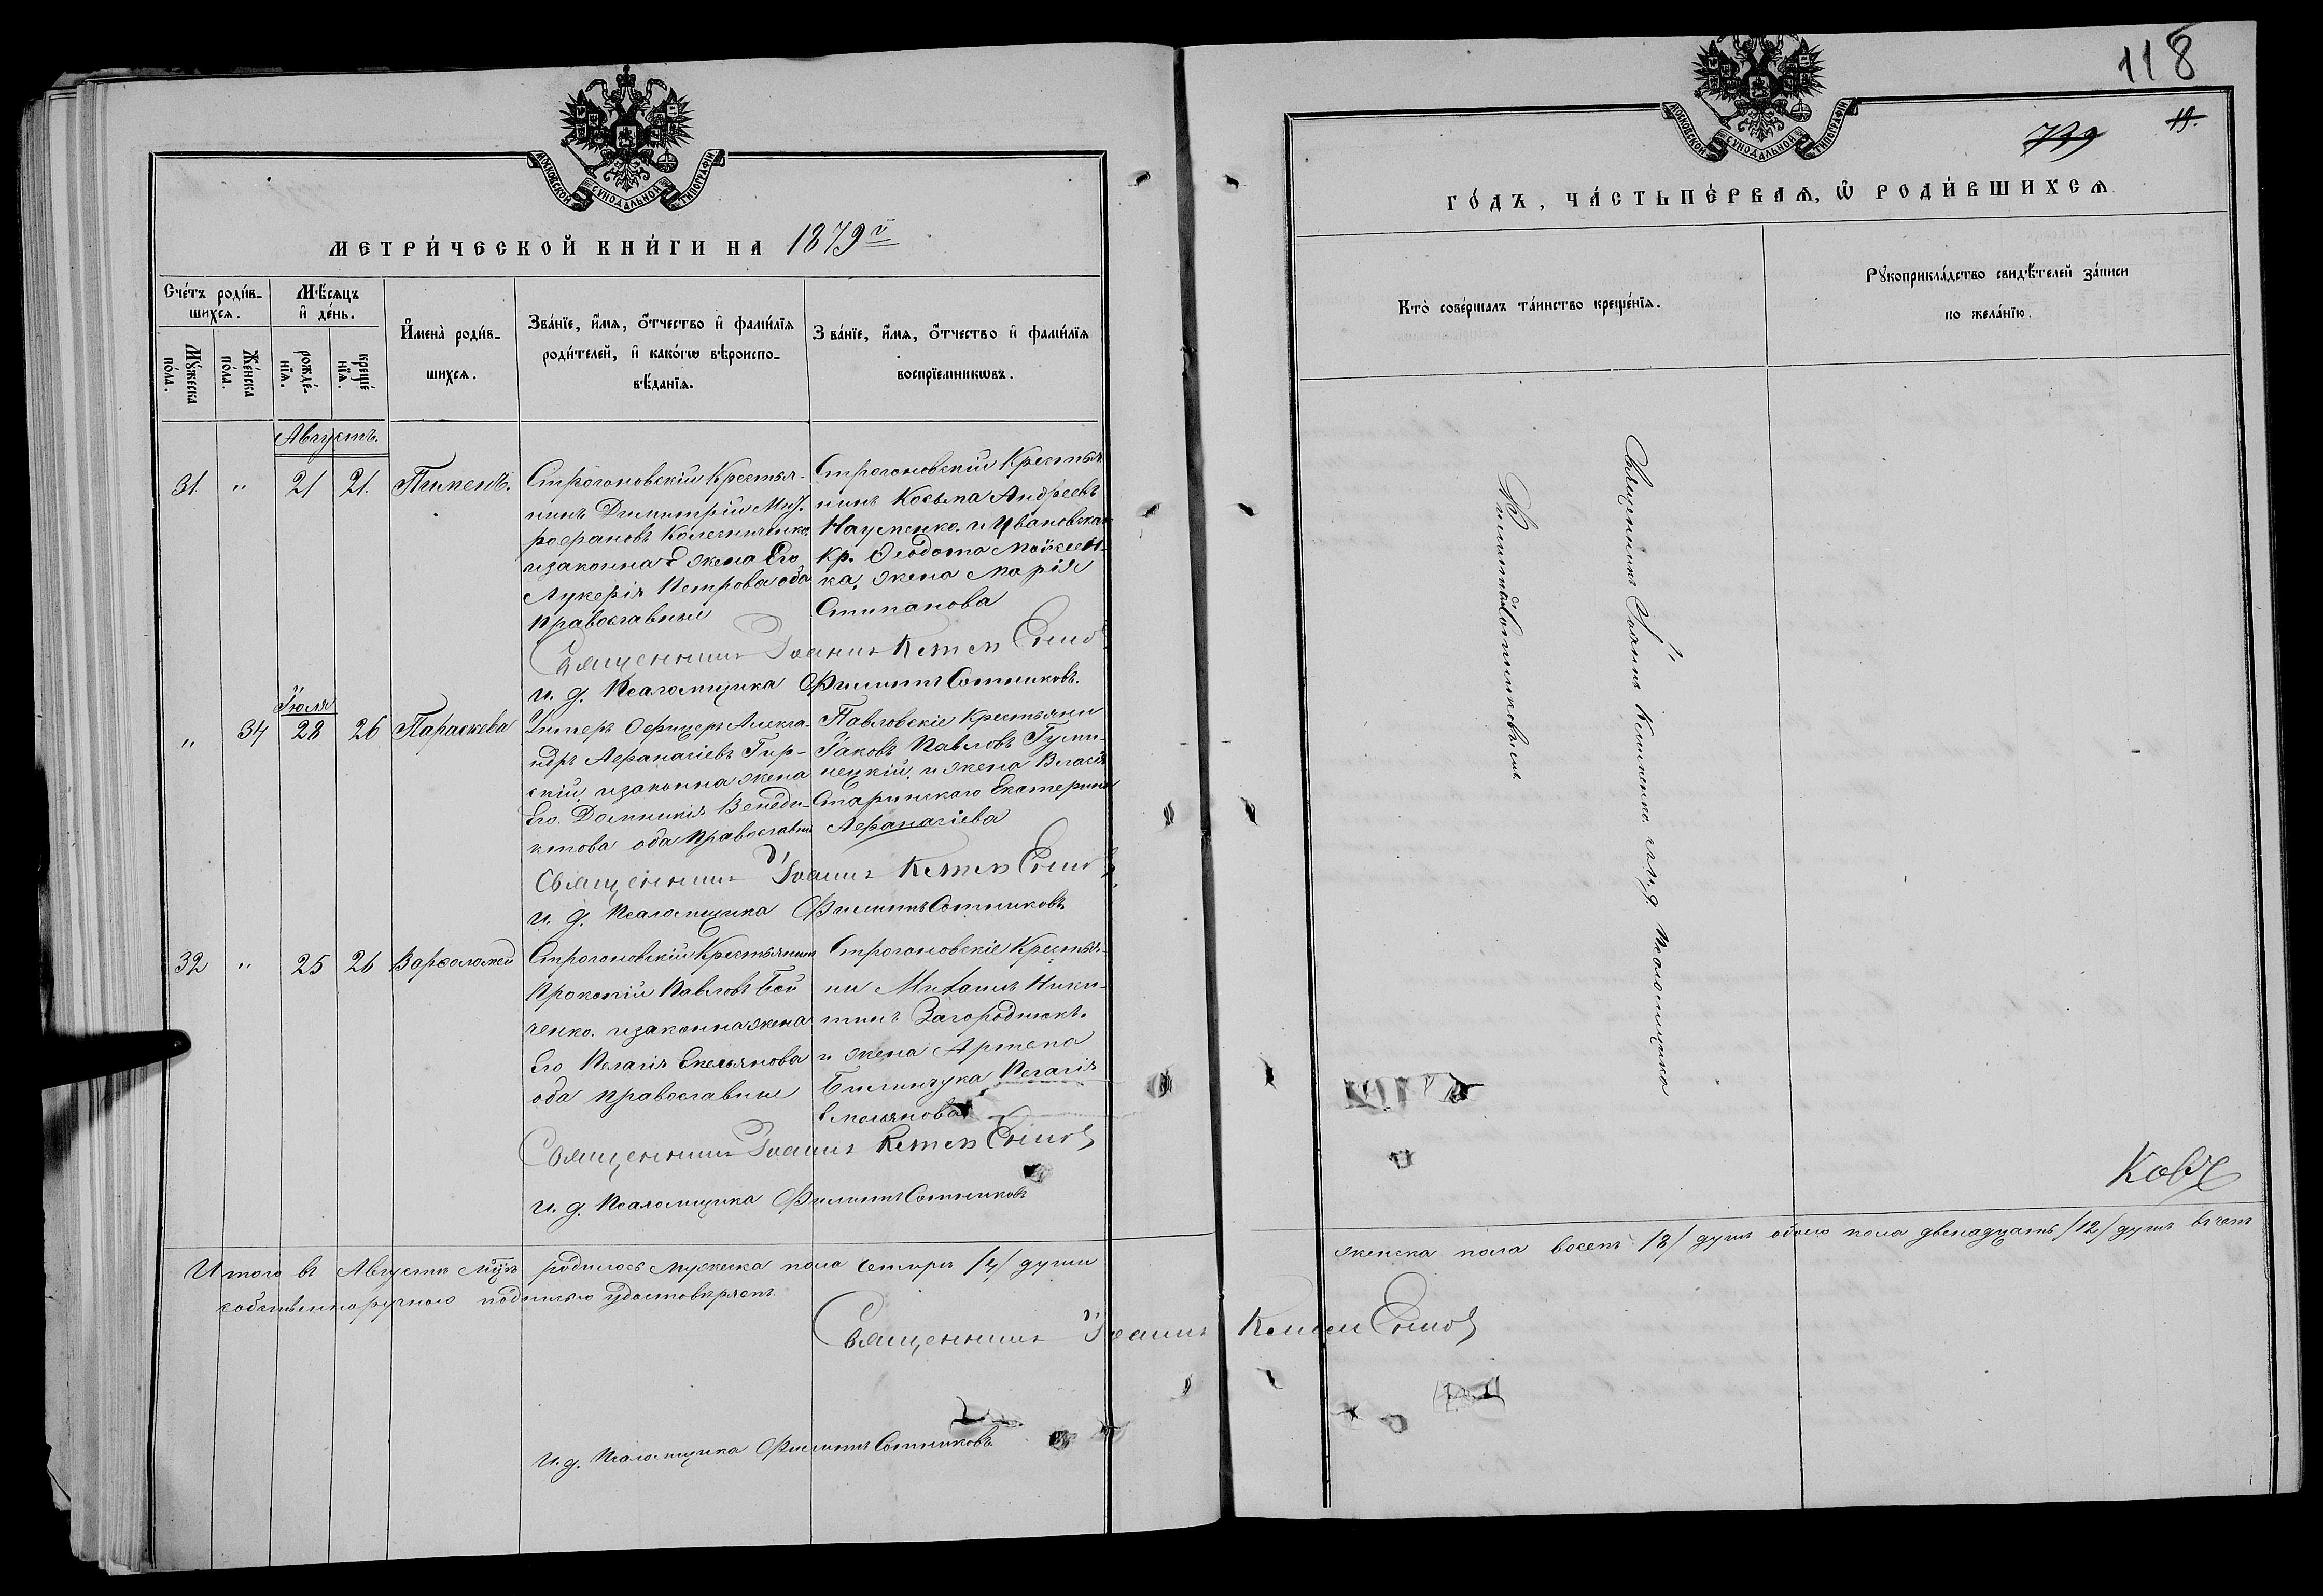 МОСКОВСКОЙ СѴНОДАЛЬНОЙ ТИПОГРАФІИ
МЕТРИ́ЧЕСКОЙ КНИ́ГИ НА 1879 г
Сче́тъ роди́в-
шихсѧ.
Мѣ́сѧцъ
и҆ де́нь.
Мꙋ́жеска
по́ла.
Же́нска
по́ла.
рожде́-
нїѧ.
креще́
нїѧ.
И҆мена̀ роди́в-
шихсѧ.
Зва́нїе, и҆́мѧ, ѻ҆́тчество и҆ фами́лїѧ
роди́телей, и҆ како́гѡ вѣроиспо-
вѣ́данїѧ.
Зва́нїе, и҆́мѧ, ѻ҆́тчество и҆ фами́лїѧ
воспрїемникѡвъ.
Августъ.
31. " 21 21. Пименъ.
Строгоновскій Крестья-
нинъ Димитрій Мит-
рофановъ Колесниченко.
и законна Е жена Его
Лукерія Петрова оба
православные
Строгоновскій Крестья
нинъ Косьма Андреевъ
Науменко. и Ивановская
Кр. Ѳеодота Моисеен-
ка, жена Марія
Стипанова
Священникъ Іоаннъ
И. д. Псаломщика Филиппъ Сотниковъ.
Іюля
" 34 28 26 Параскева
Унтеръ Офицеръ Алекса-
ндръ Афанасіевъ Гир-
скій, и законна жена
Его. Домникія Венеди-
ктова оба православны
Павловскіе Крестьяни
Іаковъ Павловъ
нецкій, и жена Власія
Старинскаго Екатерина
Афанасіева
Священникъ Іоаннъ
И. д. Псаломщика Филиппъ Сотниковъ
32 " 25 26 Варфоломей
Строгоновскій Крестьянинъ
Прокопій Павловъ Бой
ченко. и законна жена
Его Пелагія Емельянова
оба православные
Строгоновскіе Крестья-
ни Михаилъ Ники-
тинъ Загороднюкъ.
и жена Артема
Пелагія
Емельянова
Священникъ Іоаннъ
И. д. Псаломщика Филиппъ Сотниковъ
Итого въ Августѣ м-цѣ родилось мужеска пола четыри /4/ души
собственноручною подписью удостовѣряемъ
Священникъ Іоаннъ
И. д. Псаломщика Филиппъ Сотниковъ
118
19.
МОСКОВСКОЙ СѴНОДАЛЬНОЙ ТИПОГРАФІИ
ГО́ДЪ, ЧА́СТЬ ПЕ́РВАѦ, Ѡ҆ РОДИ́ВШИХСѦ
Кто̀ соверша́лъ та́инство креще́нїѧ.
Рꙋкоприкла́дство свидѣ́телей за́писи
по жела́нїю.
Священникъ Іоаннъ съ и. д. Псаломщика
Филиппомъ Сотниковымъ
женска пола восемъ /8/ душъ обоего пола двенадцать /12/ душъ въ чемъ